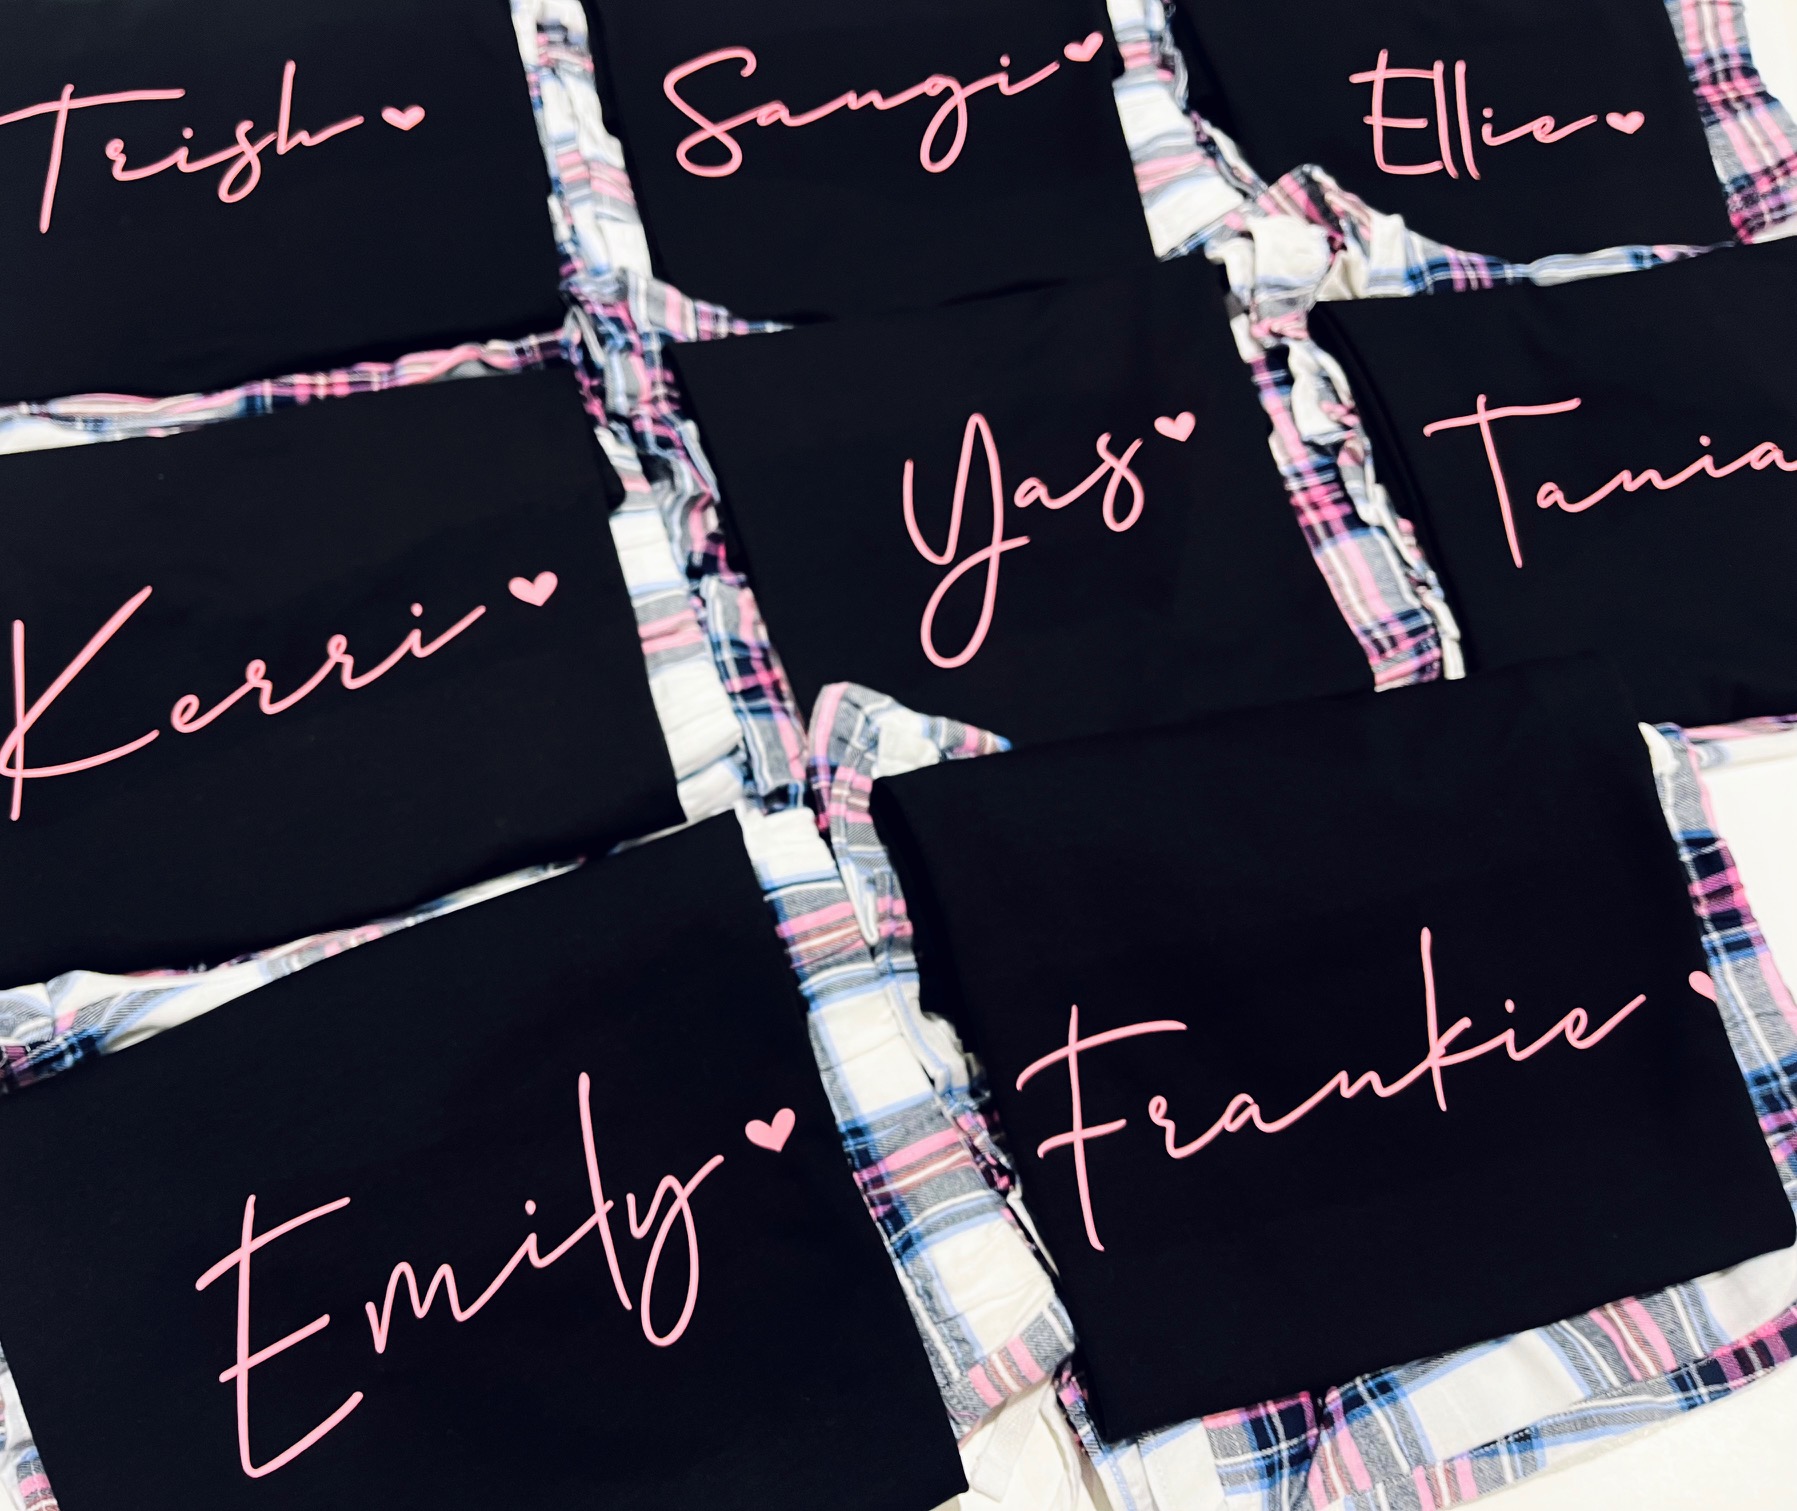 Trish
Sangi
Ellie
Kerri
Yas
Tania
Emily
Frankie